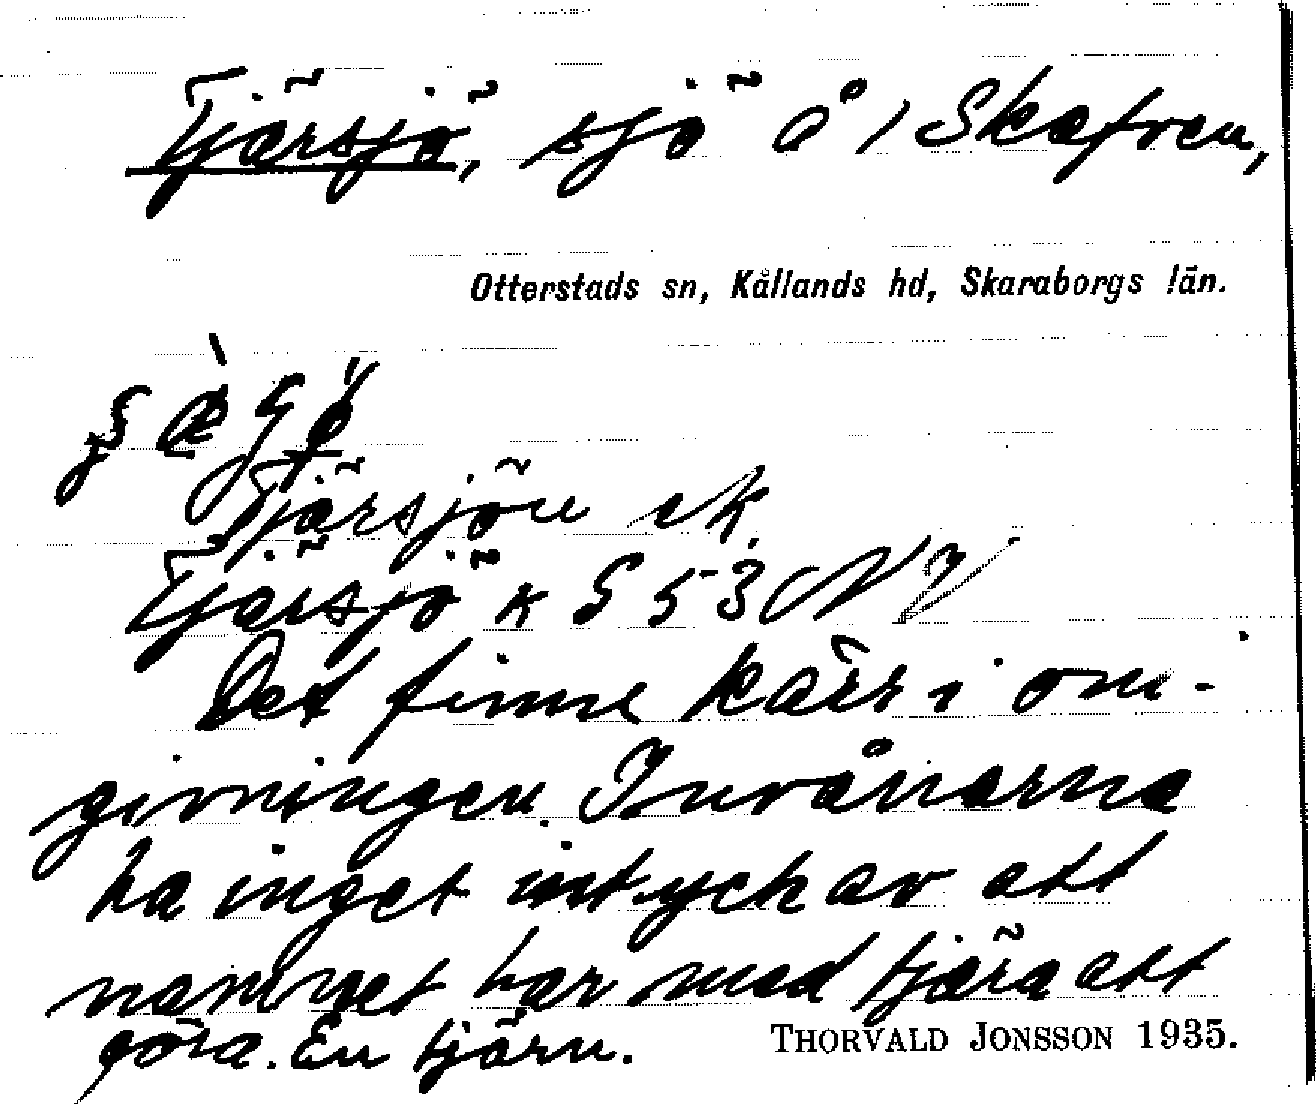 Tjärsjö, sjö å Skafven,
Otterstads sn, Kållands hd, Skaraborgs län.
Tjärsjön ek
Tjärsjö K S 53 NV
Det finns kärr i om-
givningen. Invånarna
ha inget intryck av att
namnet har med tjära att
göra. En tjärn.
THORVALD JONSSON 1935.